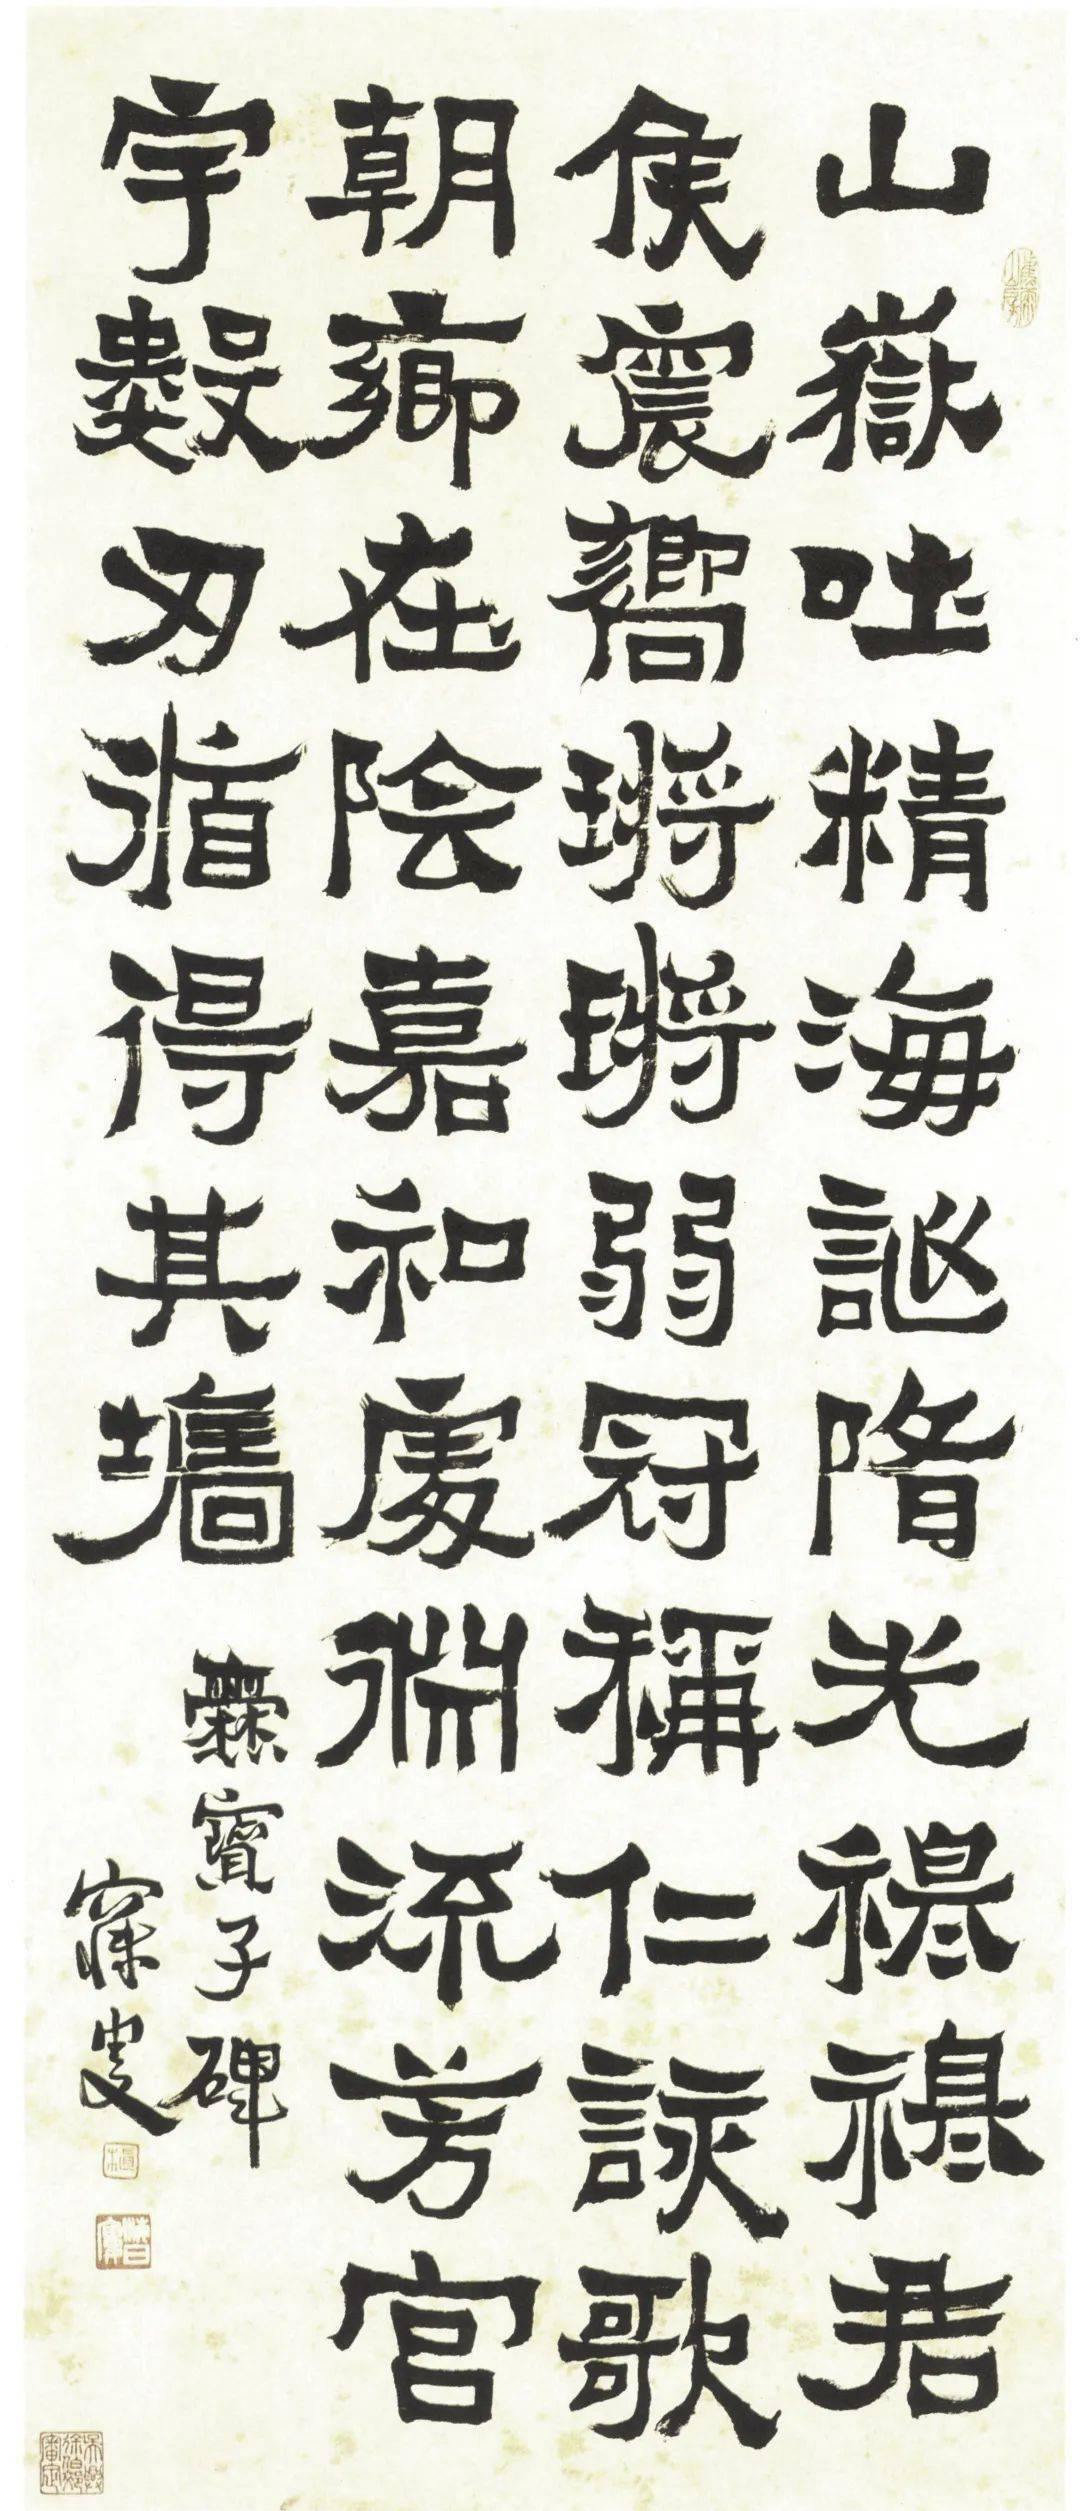 山嶽吐精海誕陏光禔禔君
侯震響鏘鏘弱冠稱仁詠歌
朝鄉在陰嘉和處淵流芳宮
宇數刃循得其墻
爨寶子碑
寐叟